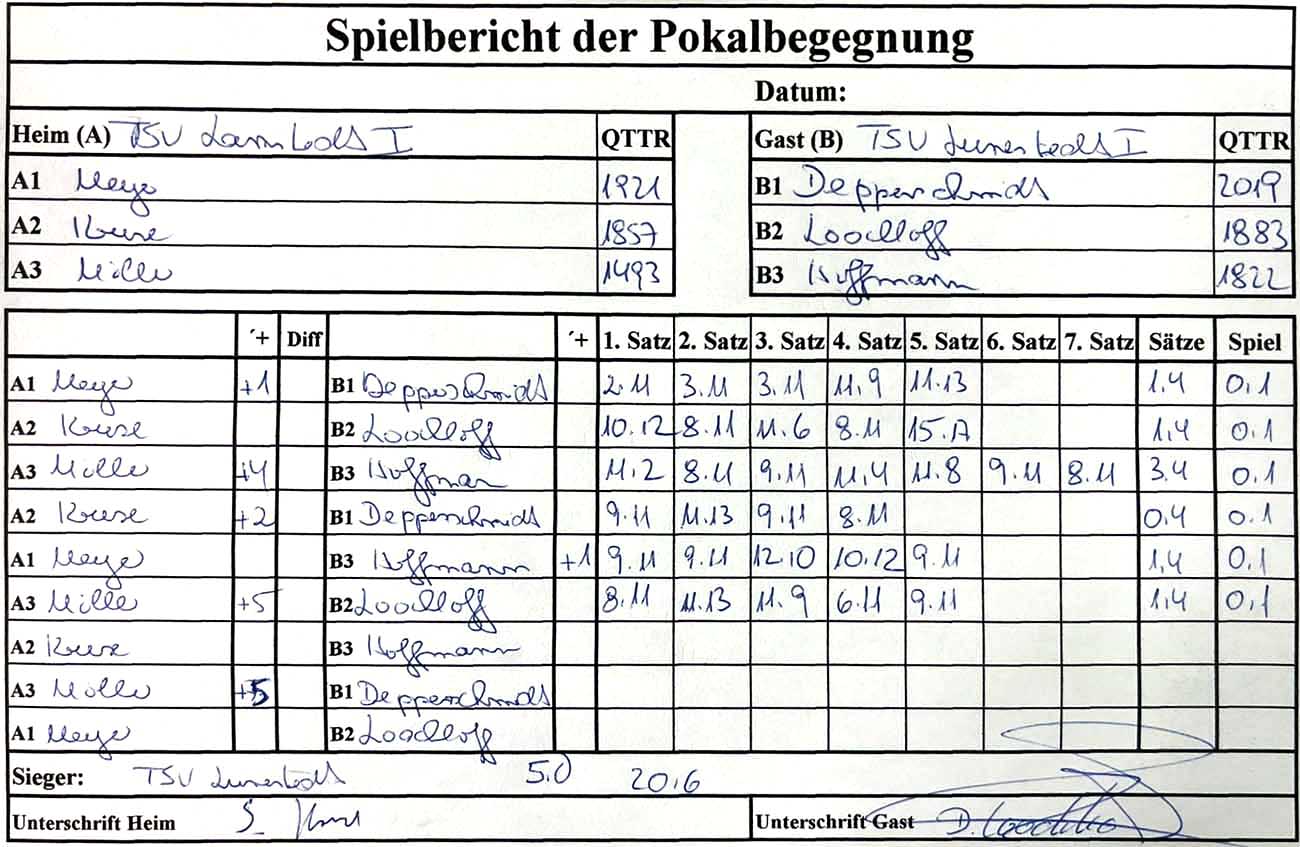 Spielbericht der Pokalbegegnung
Datum:
Heim (A) TSV Lamstedt I QTTR Gast (B) TSV Lunestedt I QTTR
A1 Meyer 1921 B1 Depperschmidt 2019
A2 Kruse 1857 B2 Loodloff 1883
A3 Müller 1493 B3 Hoffmann 1822
´+ Diff ´+ 1. Satz 2. Satz 3. Satz 4. Satz 5. Satz 6. Satz 7. Satz Sätze Spiel
A1 Meyer +1 B1 Depperschmidt 2.11 3.11 3.11 11.9 11.13 1.4 0.1
A2 Kruse B2 Loodloff 10.12 8.11 11.6 8.11 15.17 1.4 0.1
A3 Müller +4 B3 Hoffman 11.2 8.11 9.11 11.4 11.8 9.11 8.11 3.4 0.1
A2 Kruse +2 B1 Depperschmidt 9.11 11.13 9.11 8.11 0.4 0.1
A1 Meyer B3 Hoffmann +1 9.11 9.11 12.10 10.12 9.11 1.4 0.1
A3 Müller +5 B2 Loodloff 8.11 11.13 11.9 6.11 9.11 1.4 0.1
A2 Kruse B3 Hoffmann
A3 Müller +5 B1 Depperschmidt
A1 Meyer B2 Loodloff
Sieger: TSV Lunestedt 5.0 20.6
Unterschrift Heim Unterschrift Gast